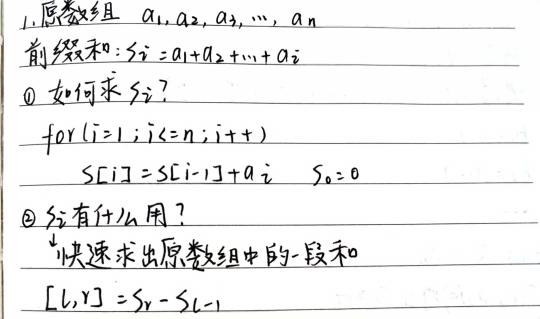 1.原数组 a₁, a₂, a₃, ..., aₙ
前缀和: Sᵢ = a₁+a₂+...+aᵢ
① 如何求 Sᵢ?
for(i=1; i<=n; i++)
S[i] = S[i-1] + aᵢ S₀=0
② Sᵢ有什么用?
↓快速求出原数组中的一段和
[l,r] = Sᵣ - Sₗ₋₁